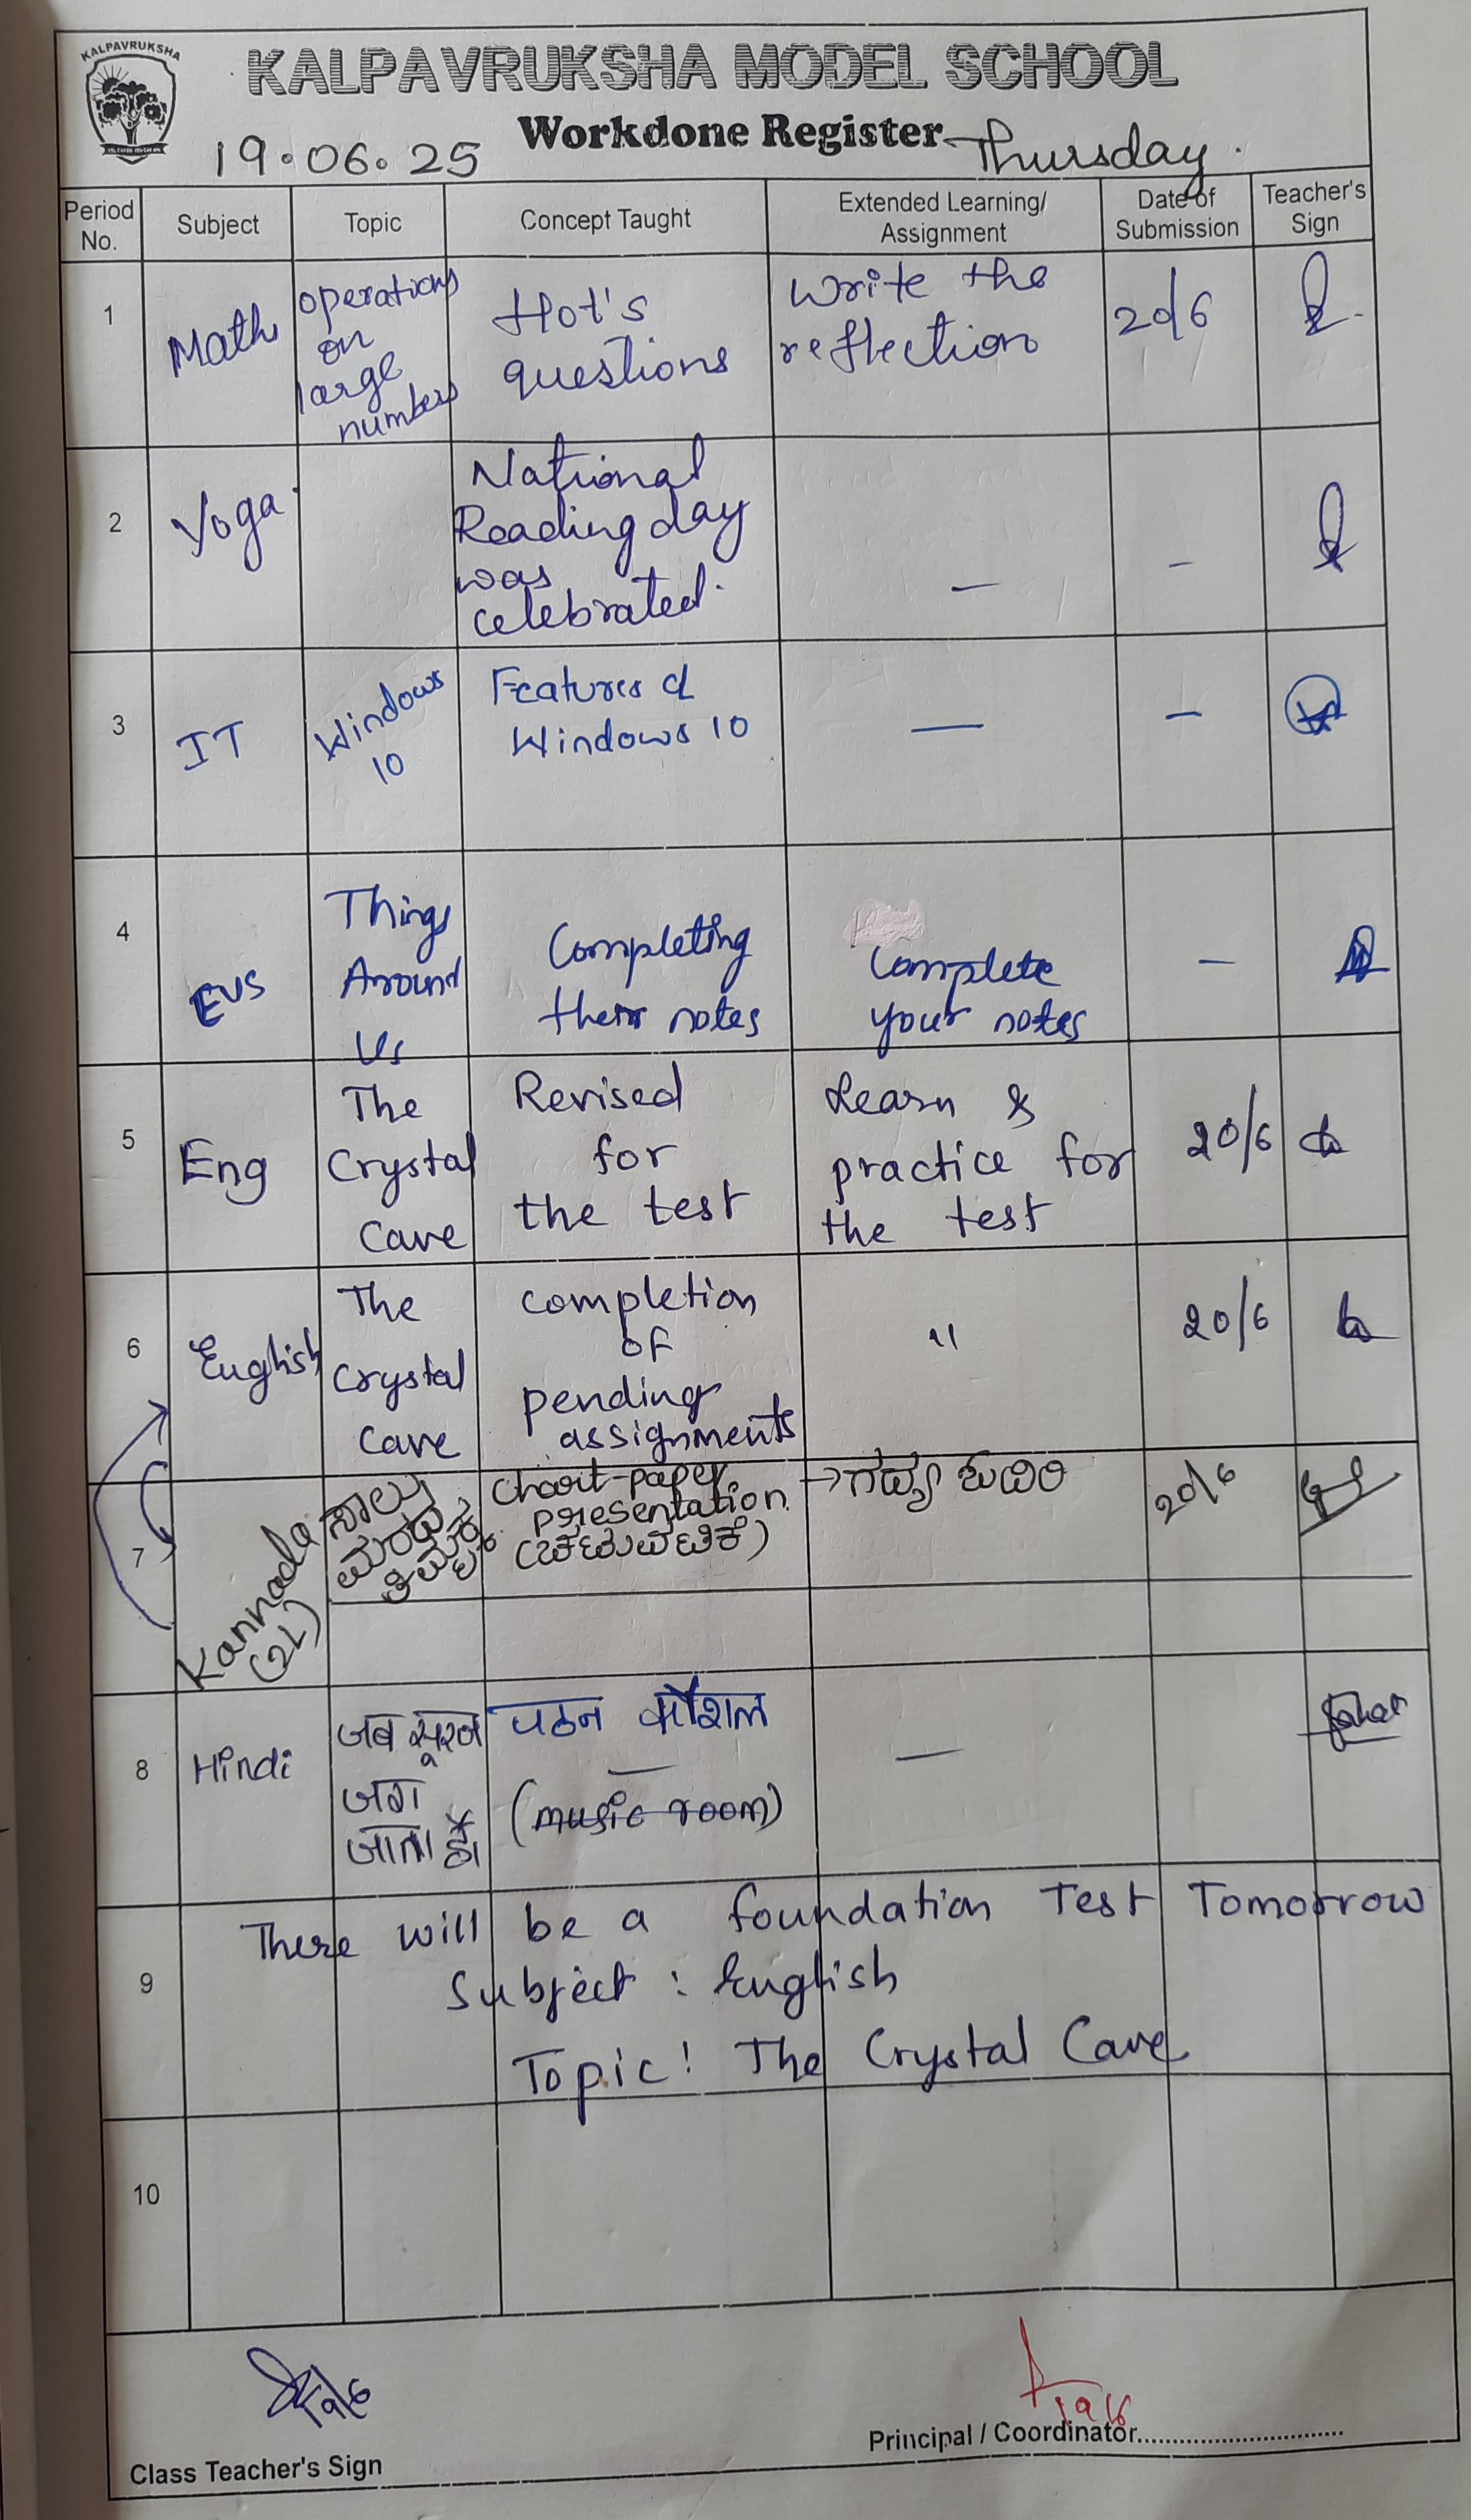 KALPAVRUKSHA
KALPAVRUKSHA MODEL SCHOOL
Workdone Register
19.06.25
Thursday.
Period No.
Subject
Topic
Concept Taught
Extended Learning/ Assignment
Date of Submission
Teacher's Sign
1
Maths
operations
on
large
numbers
Hot's
questions
Write the
reflection
20/6
2
Yoga
National
Reading day
was
celebrated.
—
-
3
IT
Windows
10
Features of
Windows 10
—
-
4
EVS
Things
Around
Us
Completing
their notes
Complete
your notes
-
5
Eng
The
Crystal
Cave
Revised
for
the test
Learn &
practice for
the test
20/6
6
English
The
Crystal
Cave
completion
of
pending
assignments
"
20/6
7
Kannada
(2L)
ಸಾಲು
ಮರದ
ತಿಮ್ಮಕ್ಕ
Chart-paper
presentation
(ಚಟುವಟಿಕೆ)
→ಗದ್ಯ ಓದಿರಿ
20/6
8
Hindi
जब सूरज
जग
जाता है
पठन कौशल
—
(music room)
—
9
There will be a foundation Test Tomorrow
Subject : English
Topic! The Crystal Cave
10
19/6
19/6
Class Teacher's Sign
Principal / Coordinator..............................